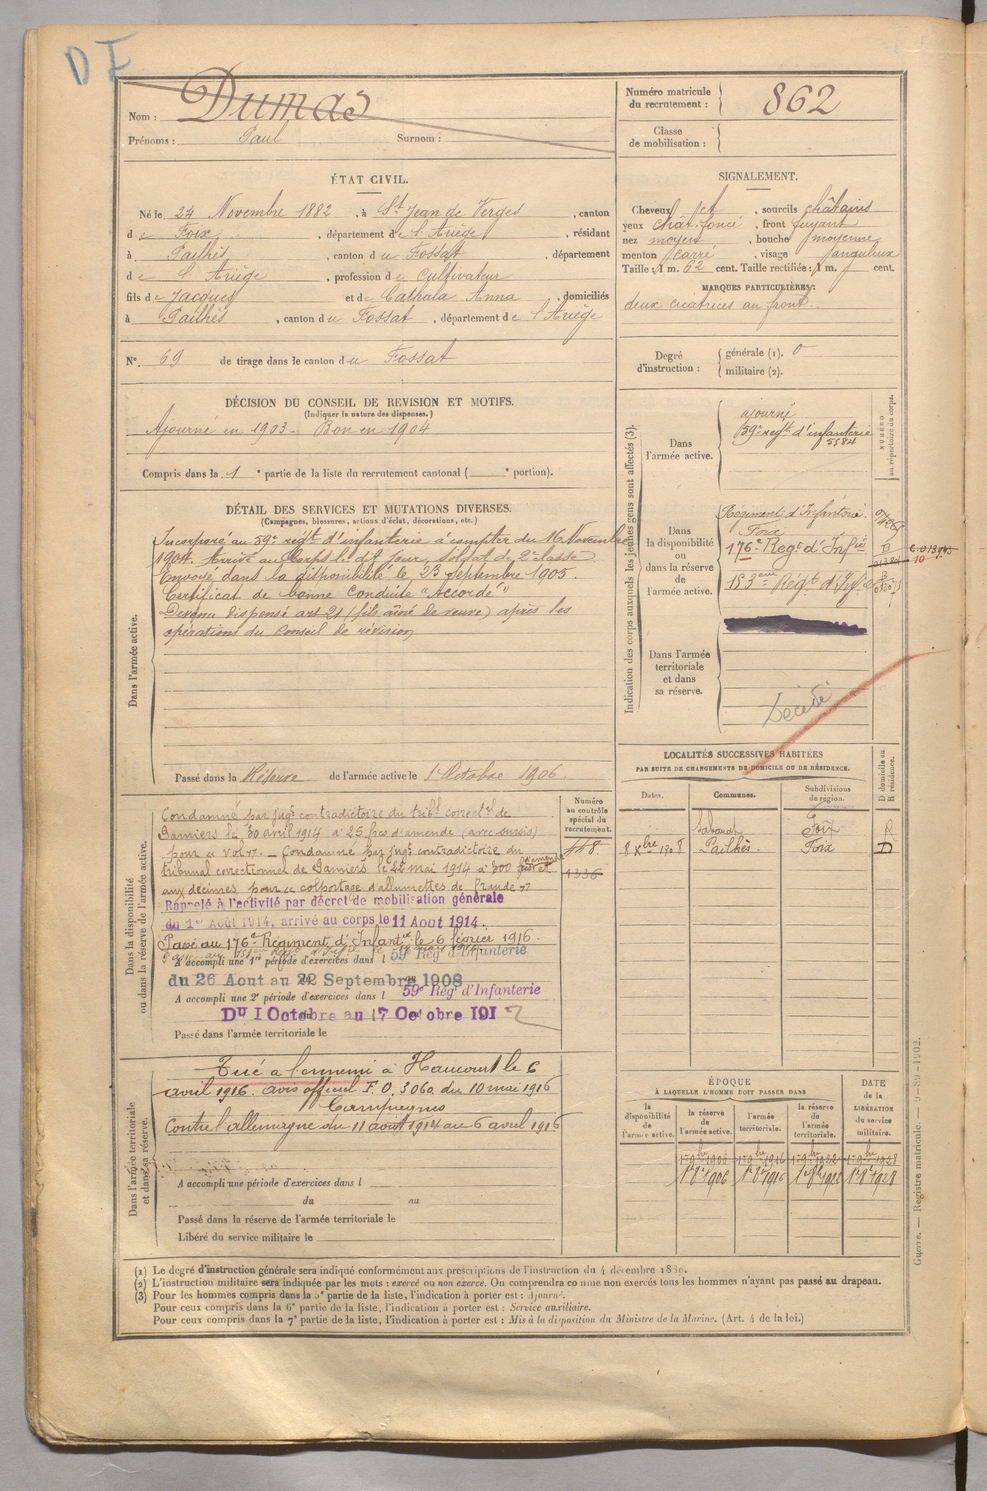 DF
Nom : Dumas
Prénoms : Paul Surnom :
Numéro matricule du recrutement : 862
Classe de mobilisation :
ÉTAT CIVIL.
Né le 24 Novembre 1882, à St Jean de Verges, canton
de Foix, département de l'Ariège, résidant
à Pailhès, canton du Fossat, département
de l'Ariège, profession de Cultivateur
fils de Jacques et de Cathala Anna, domiciliés
à Pailhès, canton du Fossat, département de l'Ariège
N° 69 de tirage dans le canton du Fossat
SIGNALEMENT.
Cheveux et, sourcils châtains
yeux chât. foncé, front fuyant
nez moyen, bouche moyenne
menton carré, visage sanguleux
Taille : 1 m. 62 cent. Taille rectifiée : 1 m. cent.
MARQUES PARTICULIÈRES :
deux cicatrices au front.
Degré d'instruction : générale (1). 0
militaire (2).
DÉCISION DU CONSEIL DE REVISION ET MOTIFS.
(Indiquer la nature des dispenses.)
Ajourné en 1903 - Bon en 1904
Compris dans la 1e partie de la liste du recrutement cantonal ( e portion).
DÉTAIL DES SERVICES ET MUTATIONS DIVERSES.
(Campagnes, blessures, actions d'éclat, décorations, etc.)
Dans l'armée active.
Incorporé au 59e régt d'infanterie à compter du 16 Novembre
1904. Arrivé au Corps le dit jour, soldat de 2e classe
Envoyé dans la disponibilité le 23 Septembre 1905.
Certificat de bonne Conduite "Accordé"
Devenu Dispensé art 21 (fils aîné de veuve) après les
opérations du Conseil de révision
Passé dans la Réserve de l'armée active le 1er Octobre 1906.
Indication des corps auxquels les jeunes gens sont affectés (3).
NUMÉRO au répertoire du corps.
Dans l'armée active.
ajourné
59e régt d'infanterie
5584
Dans la disponibilité ou dans la réserve de l'armée active.
Régiment d'Infanterie
Foix
176e Régt d'Infie
153eme Régt d'Infie
Dans l'armée territoriale et dans sa réserve.
Décédé
LOCALITÉS SUCCESSIVES HABITÉES
PAR SUITE DE CHANGEMENTS DE DOMICILE OU DE RÉSIDENCE.
Dates. Communes. Subdivisions de région. D domicile ou R résidence.
Foix R
8 Xbre 1908 Pailhès. Foix D
Dans la disponibilité ou dans la réserve de l'armée active.
Numéro au contrôle spécial du recrutement.
448
1336
Condamné par jugt contradictoire du tribl correctel de
Pamiers le 30 avril 1914 à 25 frcs d'amende (avec sursis)
pour « vol ». - Condamné par jugt contradictoire du
tribunal correctionnel de Pamiers le 22 mai 1914 à 300 frcs d'amende et
aux décimes pour « colportage d'allumettes de fraude »
Rappelé à l'activité par décret de mobilisation générale
du 1er Août 1914, arrivé au corps le 11 Aout 1914.
Passé au 176e Régiment d'Infantie le 6 février 1916.
A accompli une 1re période d'exercices dans l 59e Régt d'Infanterie
du 26 Aout au 22 Septembre 1908
A accompli une 2e période d'exercices dans l 59e Régt d'Infanterie
Du 1 Octobre au 17 Octobre 1912
Passé dans l'armée territoriale le
Dans l'armée territoriale et dans sa réserve.
Tué à l'ennemi à Haucourt le 6
avril 1916. avis officiel F.O. 3060 du 10 mai 1916
Campagnes
Contre l'allemagne du 11 août 1914 au 6 avril 1916
A accompli une période d'exercices dans l
du au
Passé dans la réserve de l'armée territoriale le
Libéré du service militaire le
ÉPOQUE
À LAQUELLE L'HOMME DOIT PASSER DANS
DATE de la LIBÉRATION du service militaire.
la disponibilité de l'armée active. la réserve de l'armée active. l'armée territoriale. la réserve de l'armée territoriale.
1 9bre 1906 1 9bre 1916 1 9bre 1922 1 9bre 1928
1er 8bre 1906 1er 8bre 1916 1er 8bre 1922 1er 8bre 1928
(1) Le degré d'instruction générale sera indiqué conformément aux prescriptions de l'instruction du 4 décembre 1889.
(2) L'instruction militaire sera indiquée par les mots : exercé ou non exercé. On comprendra comme non exercés tous les hommes n'ayant pas passé au drapeau.
(3) Pour les hommes compris dans la 5e partie de la liste, l'indication à porter est : Ajourné.
Pour ceux compris dans la 6e partie de la liste, l'indication à porter est : Service auxiliaire.
Pour ceux compris dans la 7e partie de la liste, l'indication à porter est : Mis à la disposition du Ministre de la Marine. (Art. 4 de la loi.)
Guerre. — Registre matricule. — 9-89-1902.